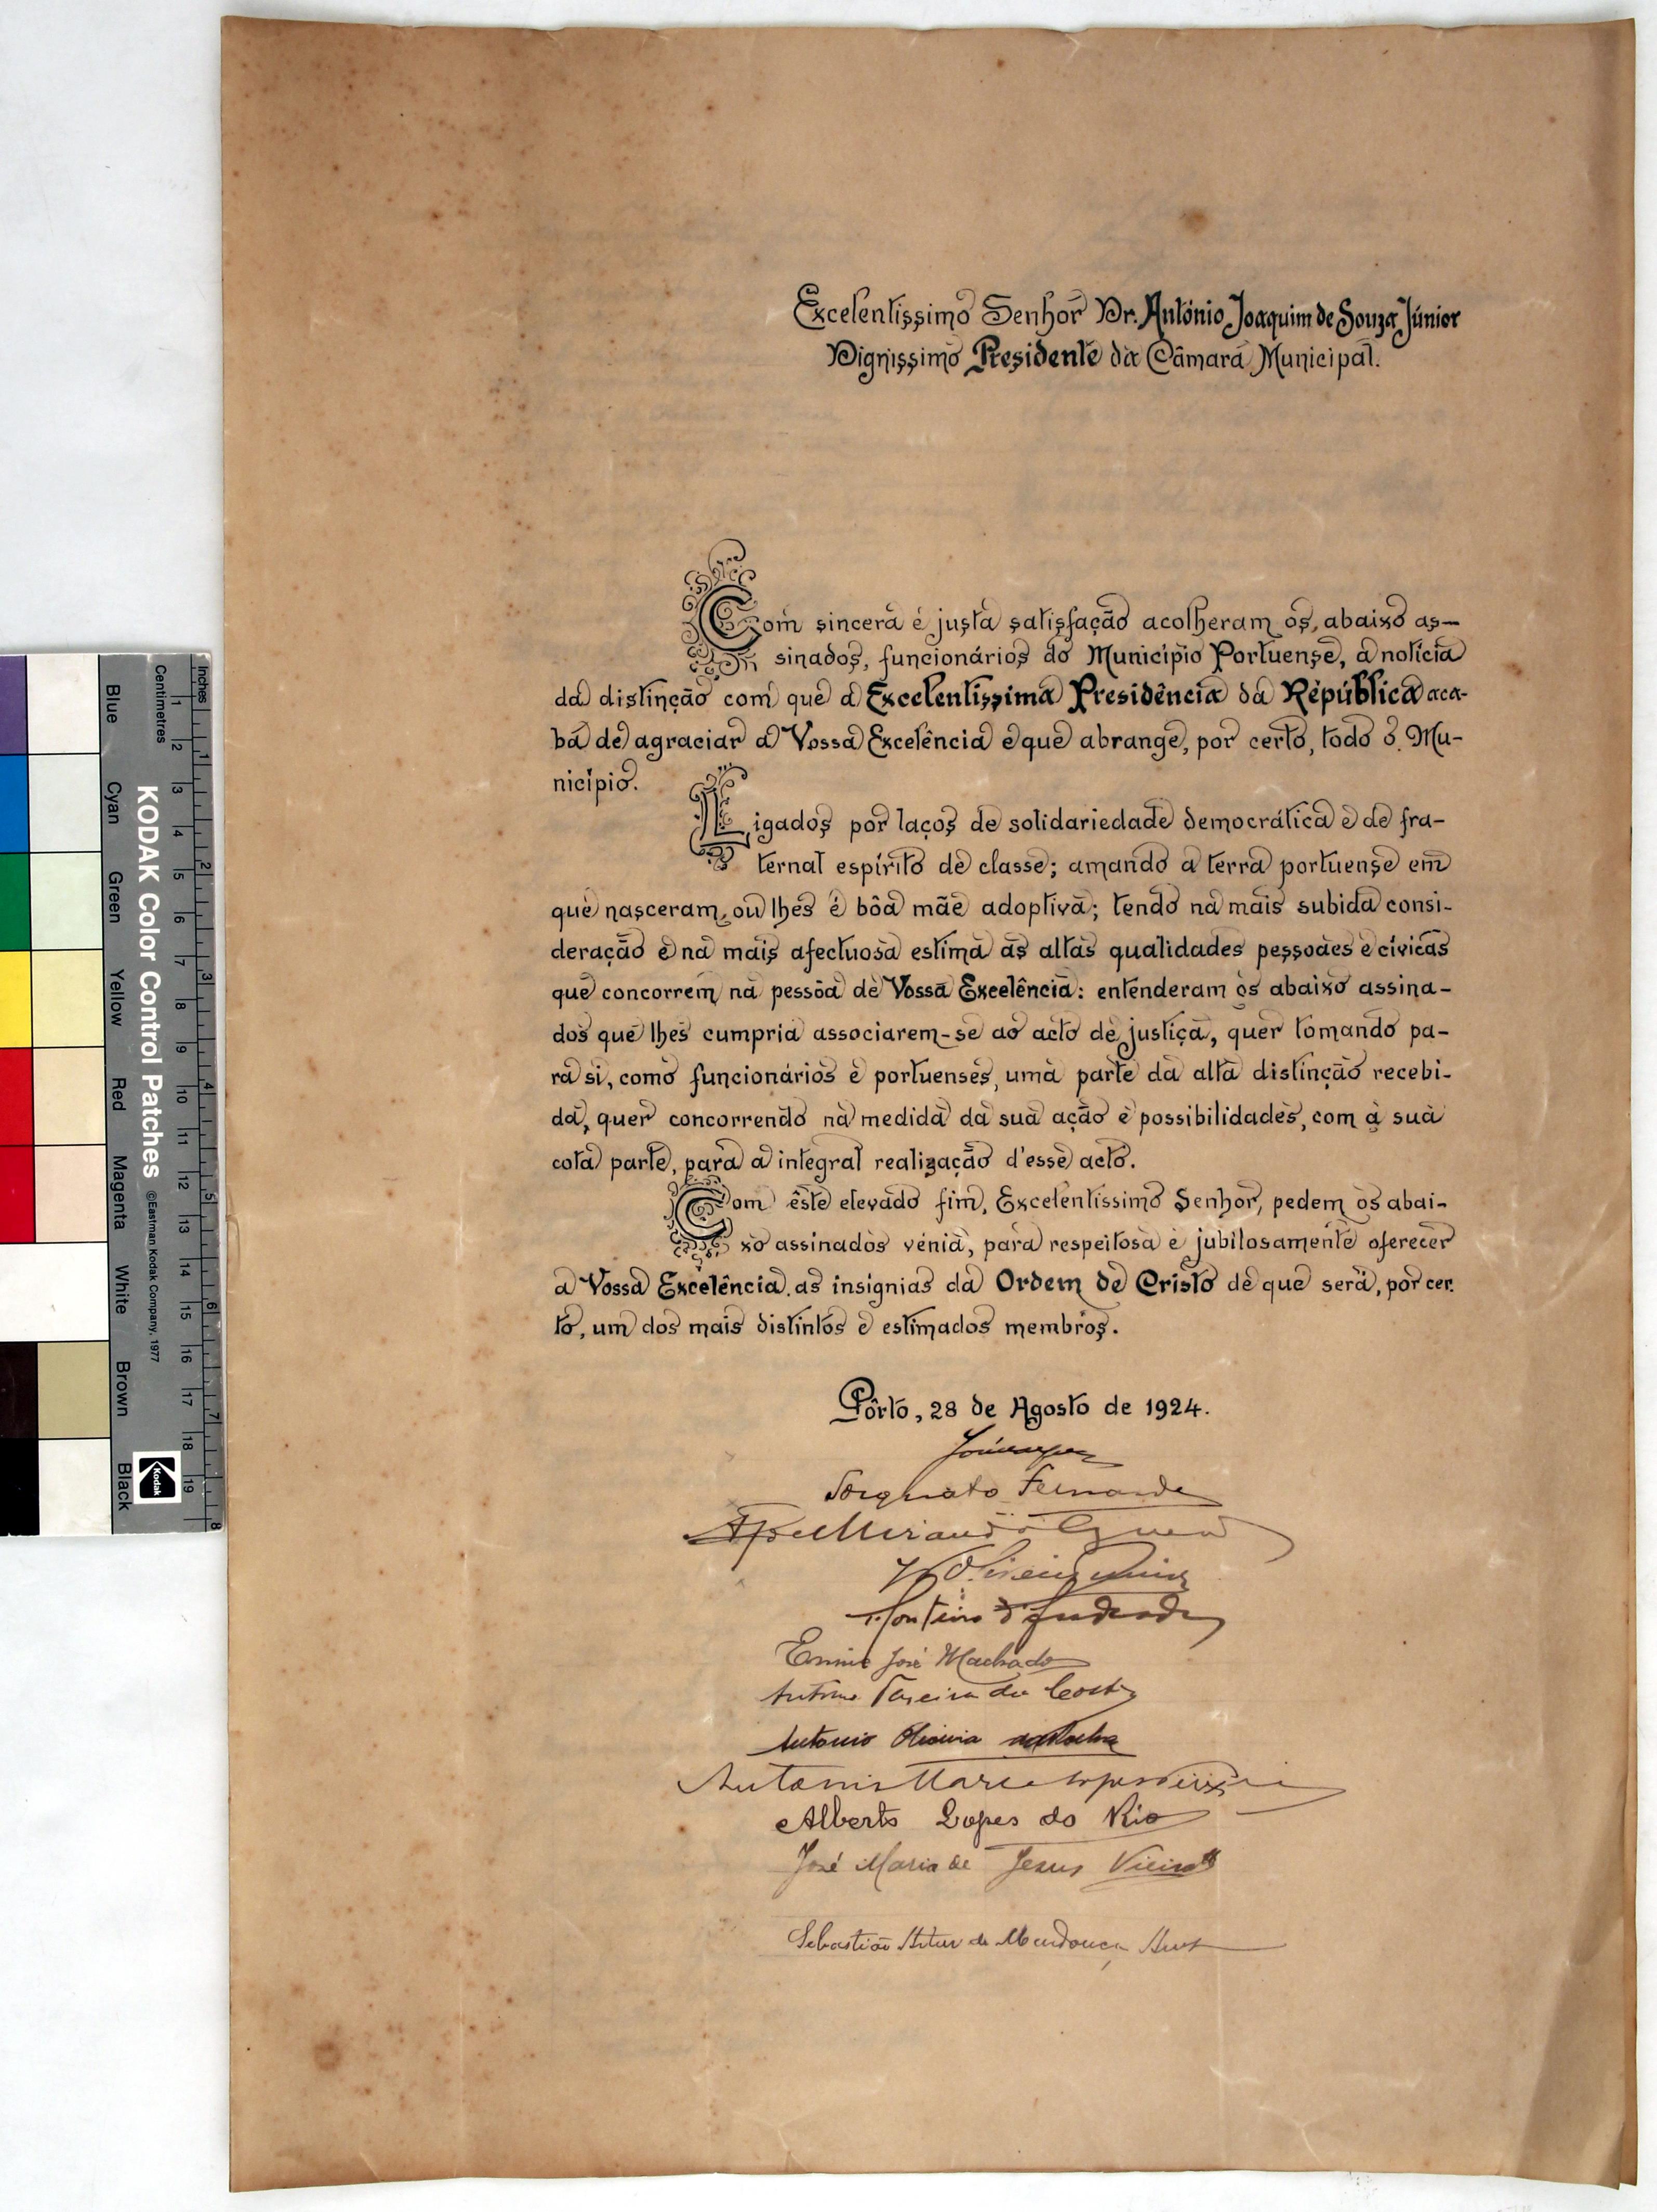 Excelentíssimo Senhor Dr. António Joaquim de Souza Júnior
Digníssimo Presidente da Câmara Municipal.
Com sincera e justa satisfação acolheram os, abaixo as-
sinados, funcionários do Município Portuense, a notícia
da distinção com que a Excelentíssima Presidência da República aca-
ba de agraciar a Vossa Excelência e que abrange, por certo, todo o Mu-
nicípio.
Ligados por laços de solidariedade democrática e de fra-
ternal espírito de classe; amando a terra portuense em
que nasceram, ou lhes é bôa mãe adoptiva; tendo na mais subida consi-
deração e na mais afectuosa estima as altas qualidades pessoaes e cívicas
que concorrem na pessôa de Vossa Excelência: entenderam os abaixo assina-
dos que lhes cumpria associarem-se ao acto de justiça, quer tomando pa-
ra si, como funcionários e portuenses, uma parte da alta distinção recebi-
da, quer concorrendo na medida da sua ação e possibilidades, com a sua
cota parte, para a integral realização d'esse acto.
Com êste elevado fim, Excelentíssimo Senhor, pedem os abai-
xo assinados vénia, para respeitosa e jubilosamente oferecer
a Vossa Excelência as insígnias da Ordem de Cristo de que será, por cer-
to, um dos mais distintos e estimados membros.
Pôrto, 28 de Agosto de 1924.
Torquato Fernandes
Monteiro d'Andrade
José Machado
António da Costa
Antonio Oliveira
Antonio Maria Lopes
Alberto Lopes do Rio
José Maria de Jesus Vieira
Sebastião Artur de Mendonça
Inches
Centimetres
1 2 3 4 5 6 7 8
1 2 3 4 5 6 7 8 9 10 11 12 13 14 15 16 17 18 19
KODAK Color Control Patches
©Eastman Kodak Company, 1977
Kodak
Blue
Cyan
Green
Yellow
Red
Magenta
White
Brown
Black